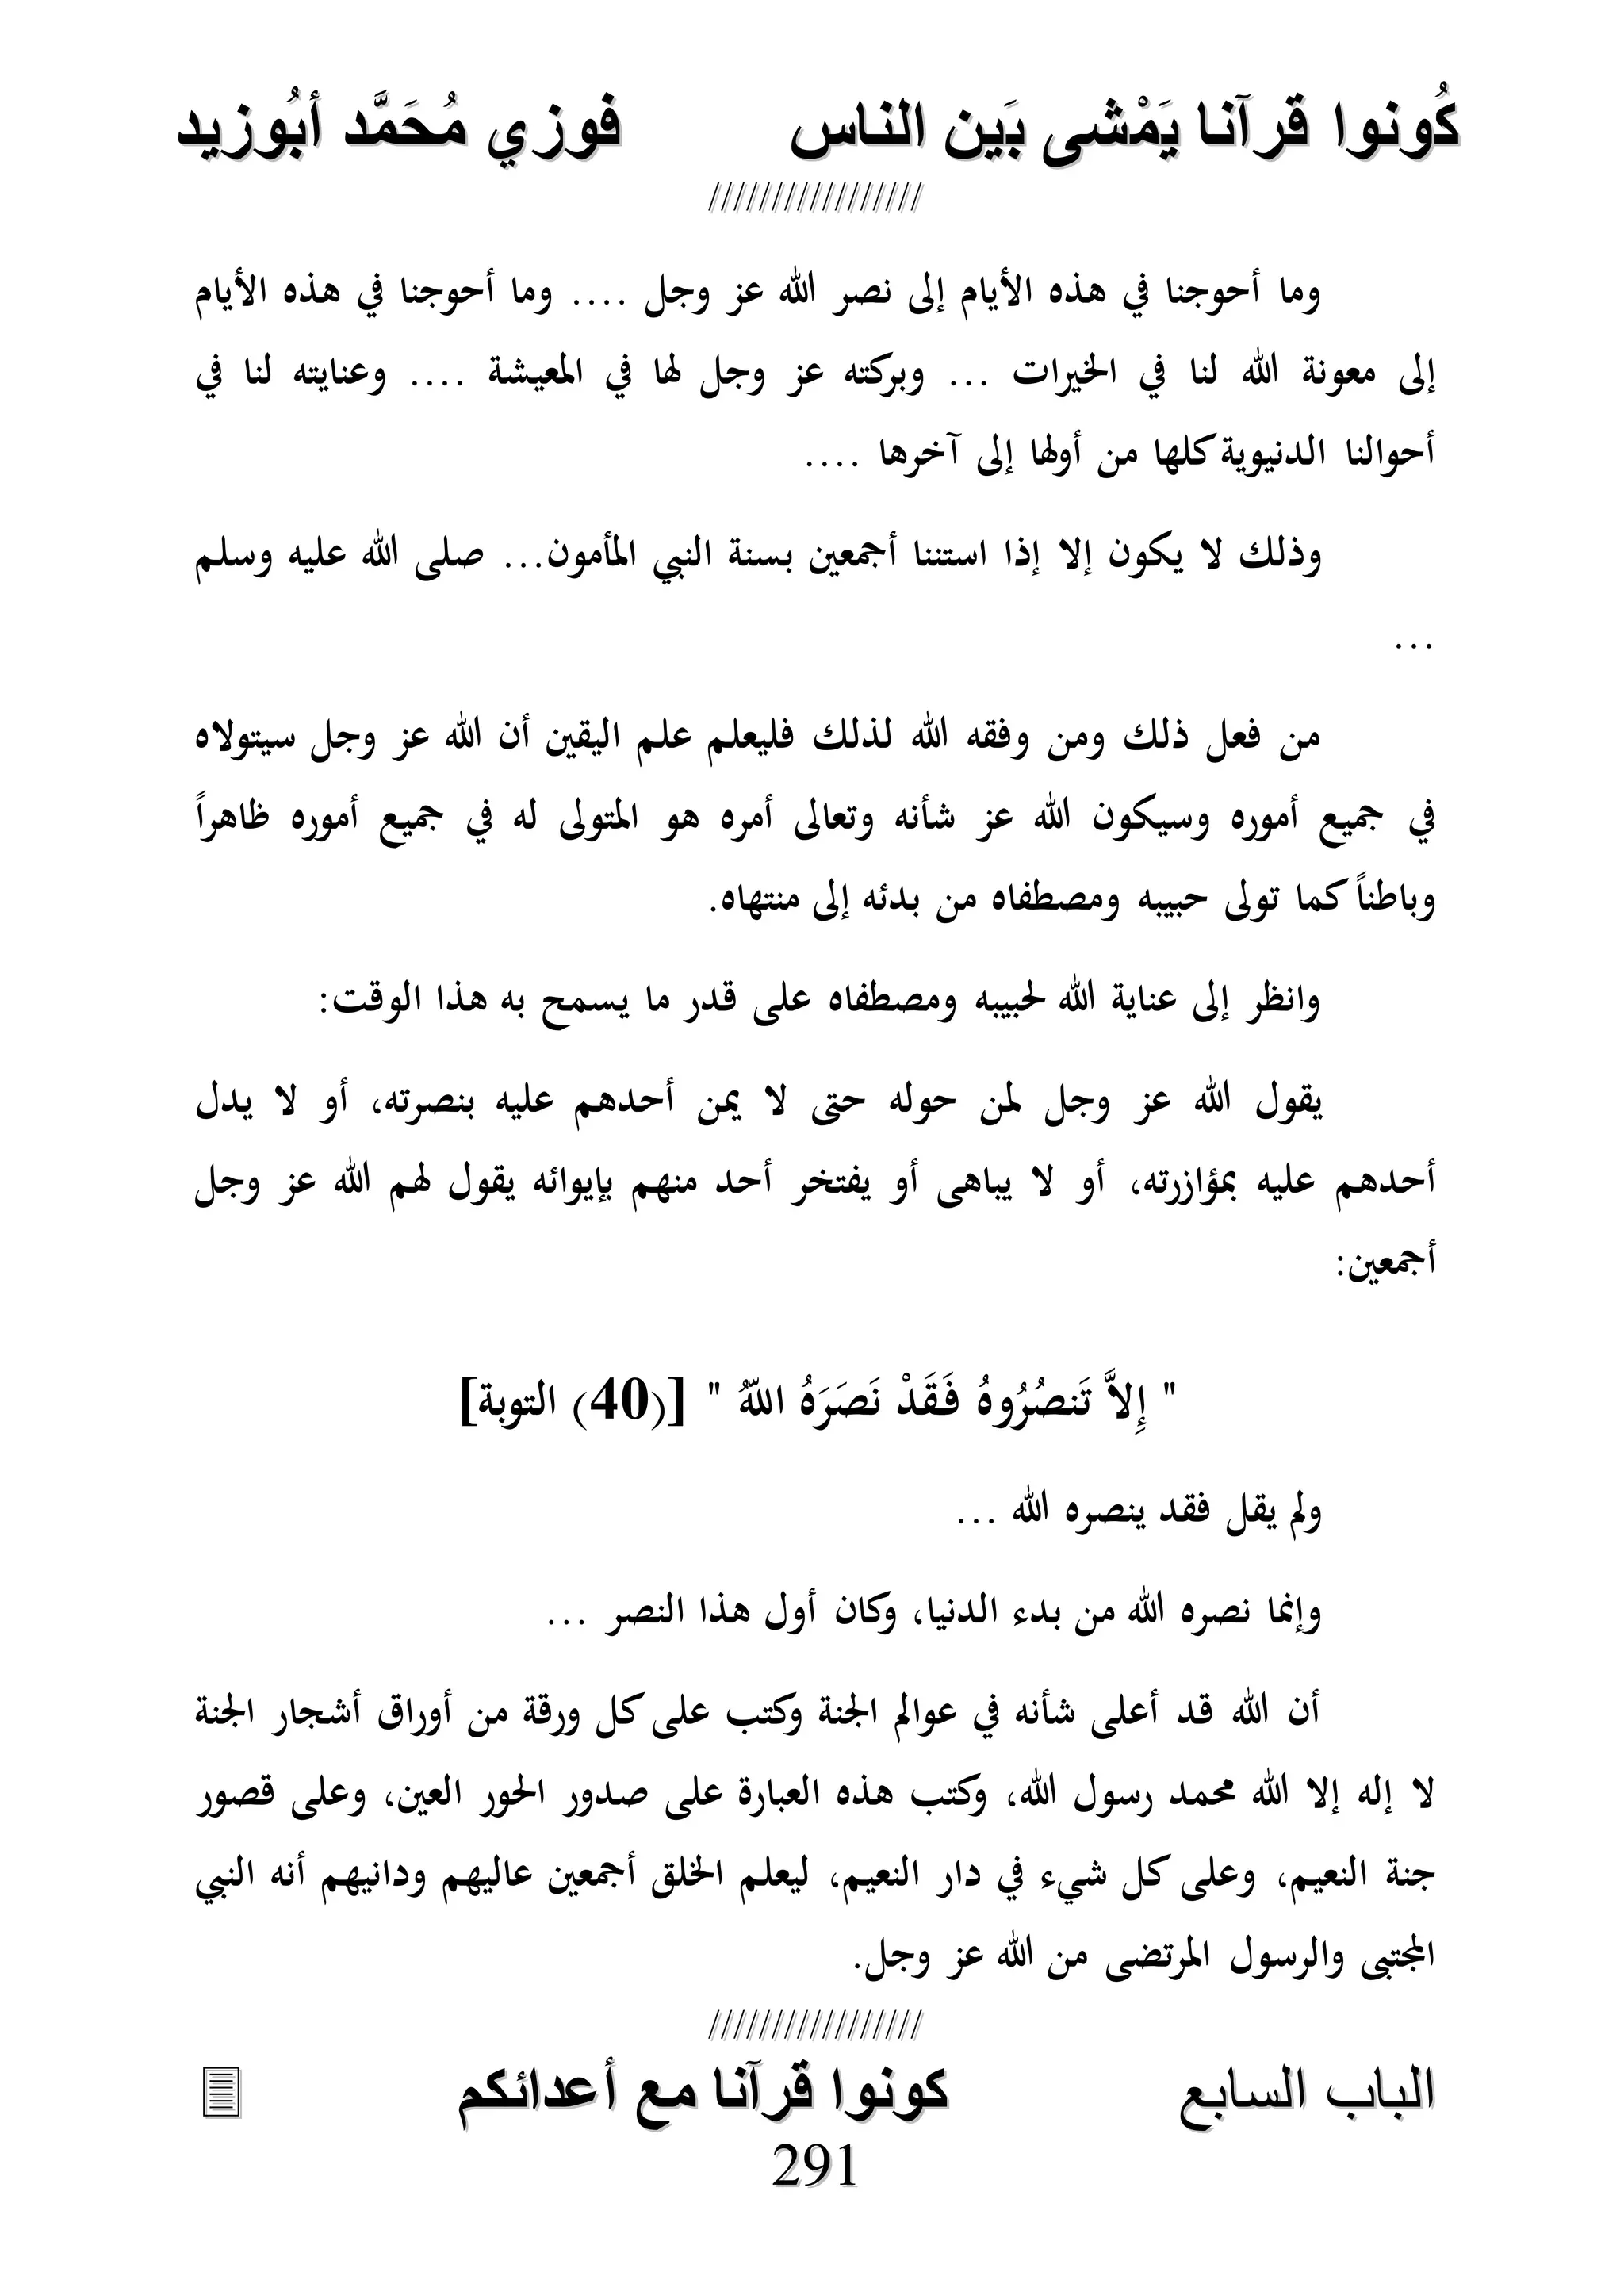 كُونوا قرآنا يَمْشى بَين الناس فوزي مُحَمَّد أبُوزيد
/////////////////
وما أحوجنا في هذه الأيام إلى نصر الله عز وجل .... وما أحوجنا في هذه الأيام
إلى معونة الله لنا في الخيرات ... وبركته عز وجل لها في المعيشة .... وعنايته لنا في
أحوالنا الدنيوية كلها من أولها إلى آخرها ....
وذلك لا يكون إلا إذا استننا أجمعين بسنة النبي المأمون... صلى الله عليه وسلم
...
من فعل ذلك ومن وفقه الله لذلك فليعلم علم اليقين أن الله عز وجل سيتولاه
في جميع أموره وسيكون الله عز شأنه وتعالى أمره هو المتولى له في جميع أموره ظاهراً
وباطناً كما تولى حبيبه ومصطفاه من بدئه إلى منتهاه.
وانظر إلى عناية الله لحبيبه ومصطفاه على قدر ما يسمح به هذا الوقت:
يقول الله عز وجل لمن حوله حتى لا يمن أحدهم عليه بنصرته، أو لا يدل
أحدهم عليه بمؤازرته، أو لا يباهى أو يفتخر أحد منهم بإيوائه يقول لهم الله عز وجل
أجمعين:
" إِلاَّ تَنصُرُوهُ فَقَدْ نَصَرَهُ اللهُ " [(40) التوبة]
ولم يقل فقد ينصره الله ...
وإنما نصره الله من بدء الدنيا، وكان أول هذا النصر ...
أن الله قد أعلى شأنه في عوالم الجنة وكتب على كل ورقة من أوراق أشجار الجنة
لا إله إلا الله محمد رسول الله، وكتب هذه العبارة على صدور الحور العين، وعلى قصور
جنة النعيم، وعلى كل شيء في دار النعيم، ليعلم الخلق أجمعين عاليهم ودانيهم أنه النبي
المجتبى والرسول المرتضى من الله عز وجل.
/////////////////
الباب السابع كونوا قرآنا مع أعدائكم
291